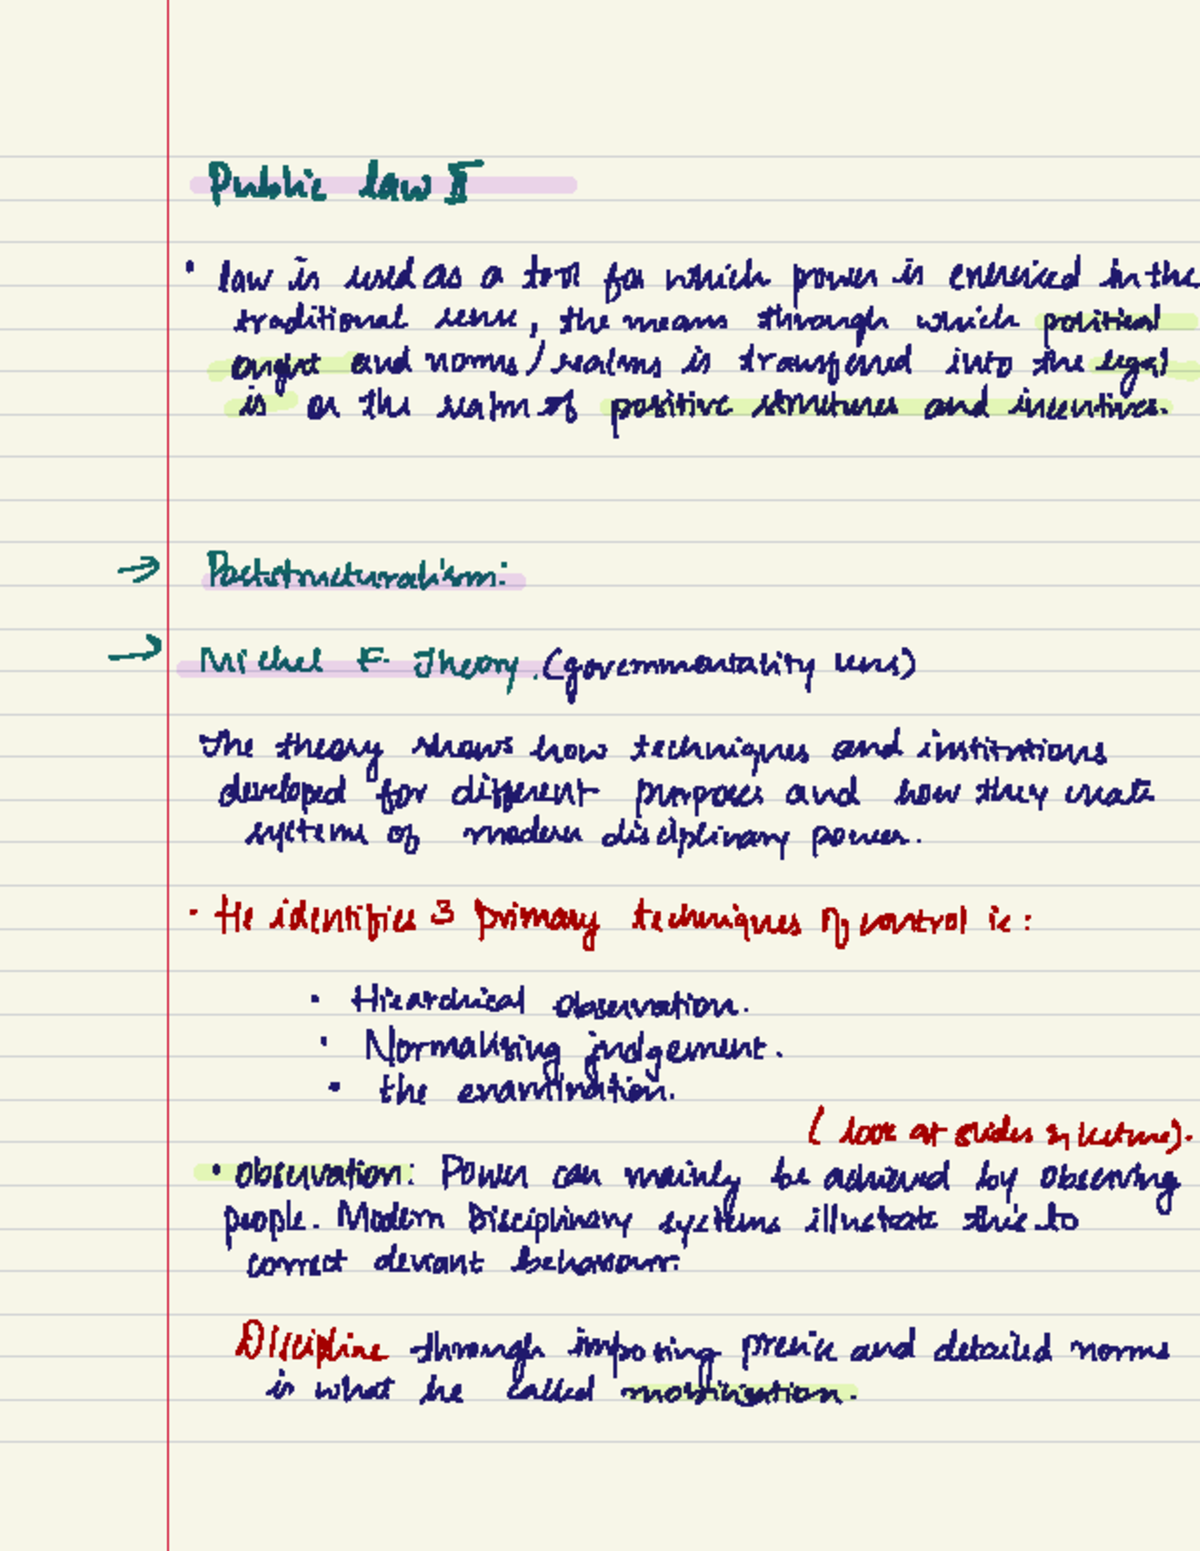 Public law II
• law is used as a tool for which power is exercised in the
traditional sense, the means through which political
and norms / realms is transferred into the legal
is or the realm of positive structures and incentives.
→ Poststructuralism:
→ Michel F. Theory. (governmentality lens)
The theory shows how techniques and institutions
developed for different purposes and how they create
systems of modern disciplinary power.
· He identifies 3 primary techniques of control ie:
• Hierarchical observation.
• Normalising judgement.
• the examination.
( look at slides in lecture).
• observation: Power can mainly be achieved by observing
people. Modern Disciplinary systems illustrate this to
correct deviant behaviour.
Discipline through imposing precise and detailed norms
is what he called